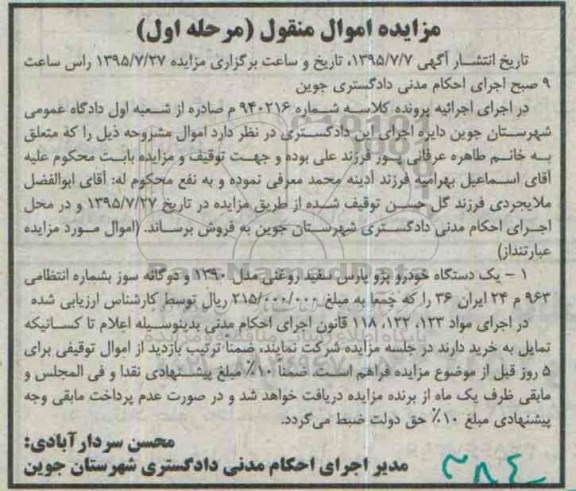 مزایده اموال منقول (مرحله اول)
تاریخ انتشار آگهی ۱۳۹۵/۷/۷، تاریخ و ساعت برگزاری مزایده ۱۳۹۵/۷/۲۷ راس ساعت
۹ صبح اجرای احکام مدنی دادگستری جوین
در اجرای اجرائیه پرونده کلاسه شماره ۹۴۰۲۱۶ م صادره از شعبه اول دادگاه عمومی
شهرستان جوین دایره اجرای این دادگستری در نظر دارد اموال مشروحه ذیل را که متعلق
به خانم طاهره عرفانی پور فرزند علی بوده و جهت توقیف و مزایده بابت محکوم علیه
آقای اسماعیل بهرامیه فرزند آدینه محمد معرفی نموده و به نفع محکوم له: آقای ابوالفضل
ملایجردی فرزند گل حسن توقیف شده از طریق مزایده در تاریخ ۱۳۹۵/۷/۲۷ و در محل
اجرای احکام مدنی دادگستری شهرستان جوین به فروش برساند. (اموال مورد مزایده
عبارتنداز)
۱ – یک دستگاه خودرو پژو پارس سفید روغنی مدل ۱۳۹۰ و دوگانه سوز بشماره انتظامی
۹۶۳ م ۲۴ ایران ۳۶ را که جمعا به مبلغ ۲۱۵/۰۰۰/۰۰۰ ریال توسط کارشناس ارزیابی شده
در اجرای مواد ۱۲۳، ۱۲۲، ۱۱۸ قانون اجرای احکام مدنی بدینوسیله اعلام تا کسانیکه
تمایل به خرید دارند در جلسه مزایده شرکت نمایند، ضمنا ترتیب بازدید از اموال توقیفی برای
۵ روز قبل از موضوع مزایده فراهم است. ضمنا ۱۰٪ مبلغ پیشنهادی نقدا و فی المجلس و
مابقی ظرف یک ماه از برنده مزایده دریافت خواهد شد و در صورت عدم پرداخت مابقی وجه
پیشنهادی مبلغ ۱۰٪ حق دولت ضبط می‌گردد.
محسن سردارآبادی:
مدیر اجرای احکام مدنی دادگستری شهرستان جوین
۳۸۴